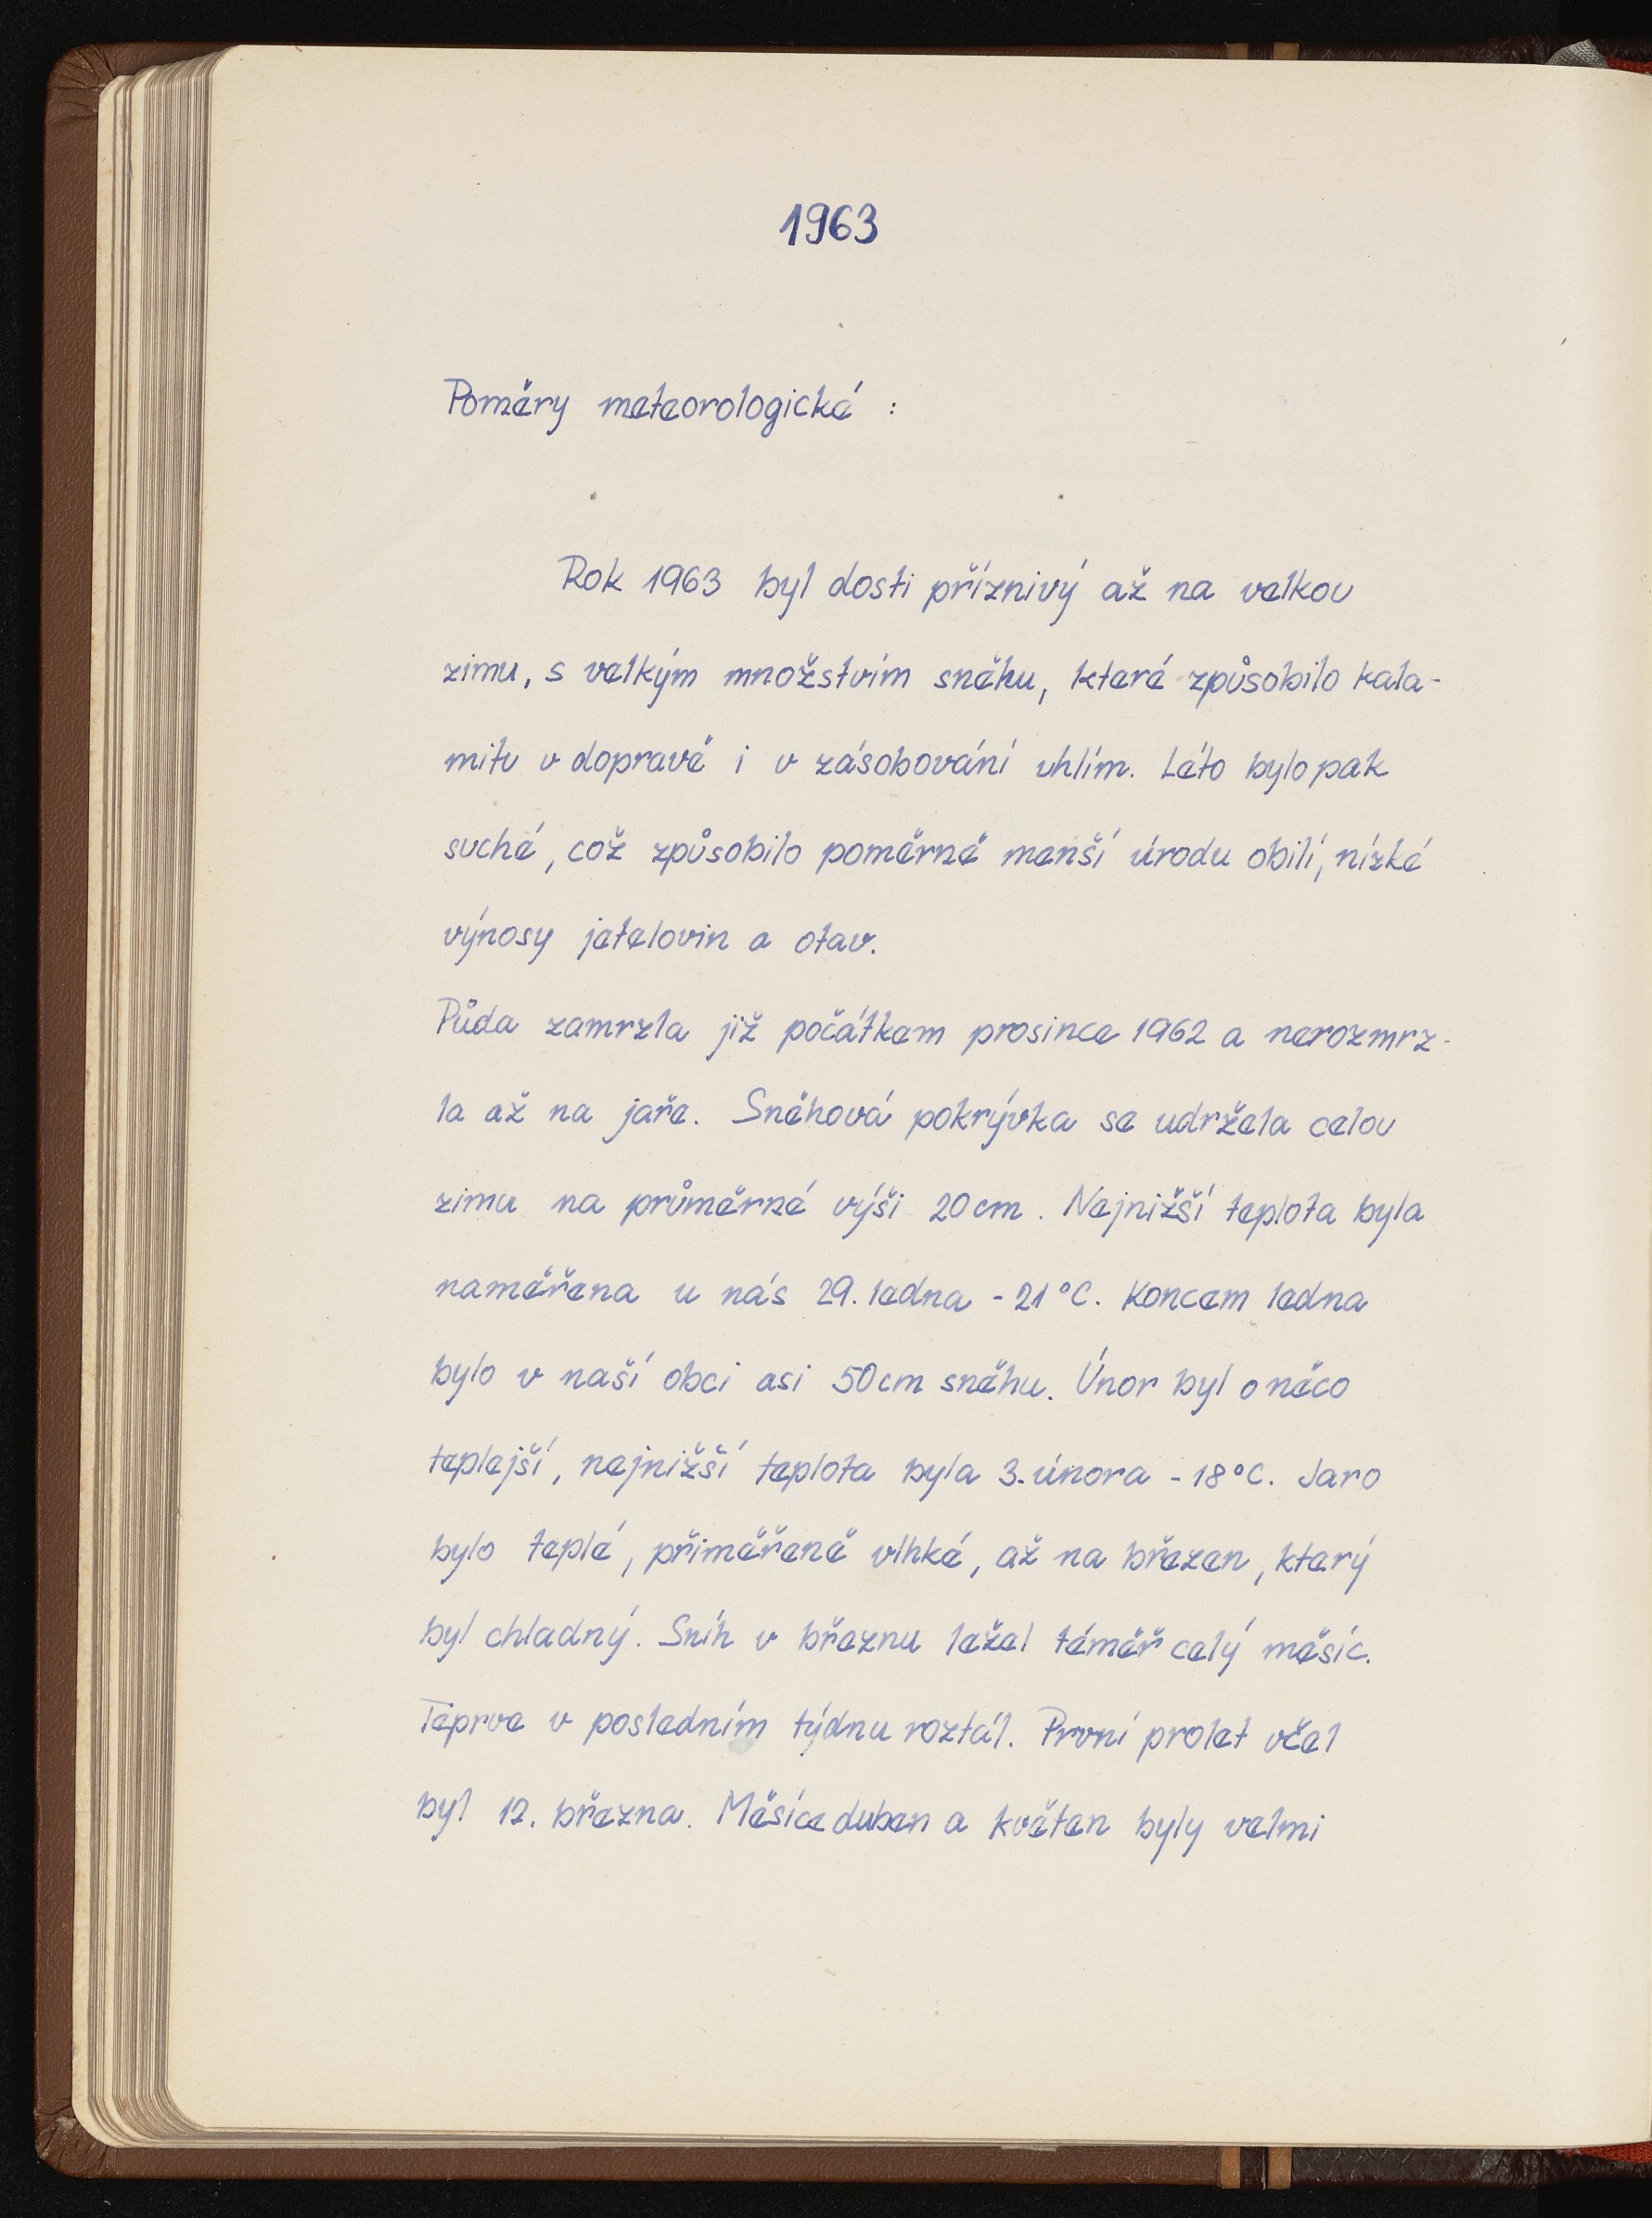 1963
Poměry meteorologické :
Rok 1963 byl dosti příznivý až na velkou
zimu, s velkým množstvím sněhu, které způsobilo kala-
mitu v dopravě i v zásobování uhlím. Léto bylo pak
suché, což způsobilo poměrně menší úrodu obilí, nízké
výnosy jetelovin a otav.
Půda zamrzla již počátkem prosince 1962 a nerozmrz-
la až na jaře. Sněhová pokrývka se udržela celou
zimu na průměrné výši 20 cm. Nejnižší teplota byla
naměřena u nás 29. ledna - 21°C. Koncem ledna
bylo v naší obci asi 50 cm sněhu. Únor byl o něco
teplejší, nejnižší teplota byla 3. února - 18°C. Jaro
bylo teplé, přiměřeně vlhké, až na březen, který
byl chladný. Sníh v březnu ležel téměř celý měsíc.
Teprve v posledním týdnu roztál. První prolet včel
byl 12. března. Měsíce duben a květen byly velmi